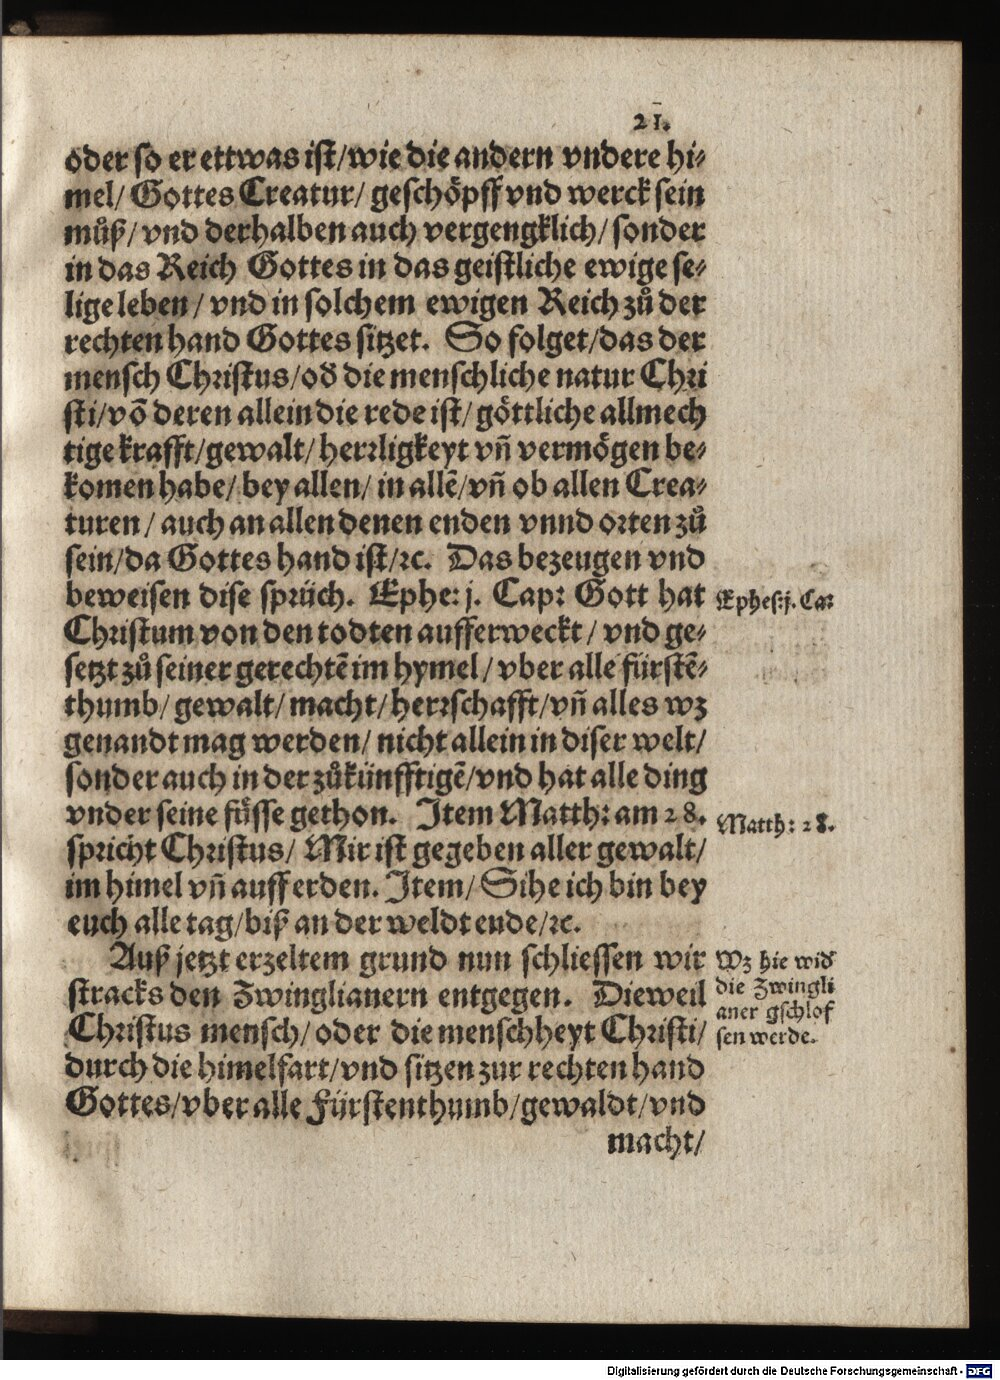 21.
oder so er ettwas ist/wie die andern vndere hi⸗
mel/ Gottes Creatur/ geschöpff vnd werck sein
můß/ vnd derhalben auch vergengklich/ sonder
in das Reich Gottes in das geistliche ewige se⸗
lige leben/ vnd in solchem ewigen Reich zů der
rechten hand Gottes sitzet. So folget/das der
mensch Christus/od̕ die menschliche natur Chri
sti/võ deren allein die rede ist/ göttliche allmech
tige krafft/gewalt/ herrligkeyt vñ vermögen be⸗
komen habe/ bey allen/ in allẽ/vñ ob allen Crea⸗
turen/ auch an allen denen enden vnnd orten zů
sein/da Gottes hand ist/ꝛc. Das bezeugen vnd
beweisen dise sprüch. Ephe: j. Cap: Gott hat
Ephes: j. Ca:
Christum von den todten aufferweckt/ vnd ge⸗
setzt zů seiner gerechtẽ im hymel/ vber alle fürstẽ⸗
thumb/ gewalt/ macht/ herrschafft/vñ alles wz
genandt mag werden/ nicht allein in diser welt/
sonder auch in der zůkünfftigẽ/vnd hat alle ding
vnder seine füsse gethon. Item Matth: am 28.
Matth: 28.
spricht Christus/ Mir ist gegeben aller gewalt/
im himel vñ auff erden. Item/ Sihe ich bin bey
euch alle tag/biß an der weldt ende/ꝛc.
Auß jetzt erzeltem grund nun schliessen wir
stracks den Zwinglianern entgegen. Dieweil
Christus mensch/ oder die menschheyt Christi/
durch die himelfart/vnd sitzen zur rechten hand
Gottes/vber alle Fürstenthumb/gewaldt/vnd
Wz hie wid̕
die Zwingli
aner gschlos
sen werde.
macht/
Digitalisierung gefördert durch die Deutsche Forschungsgemeinschaft - DFG